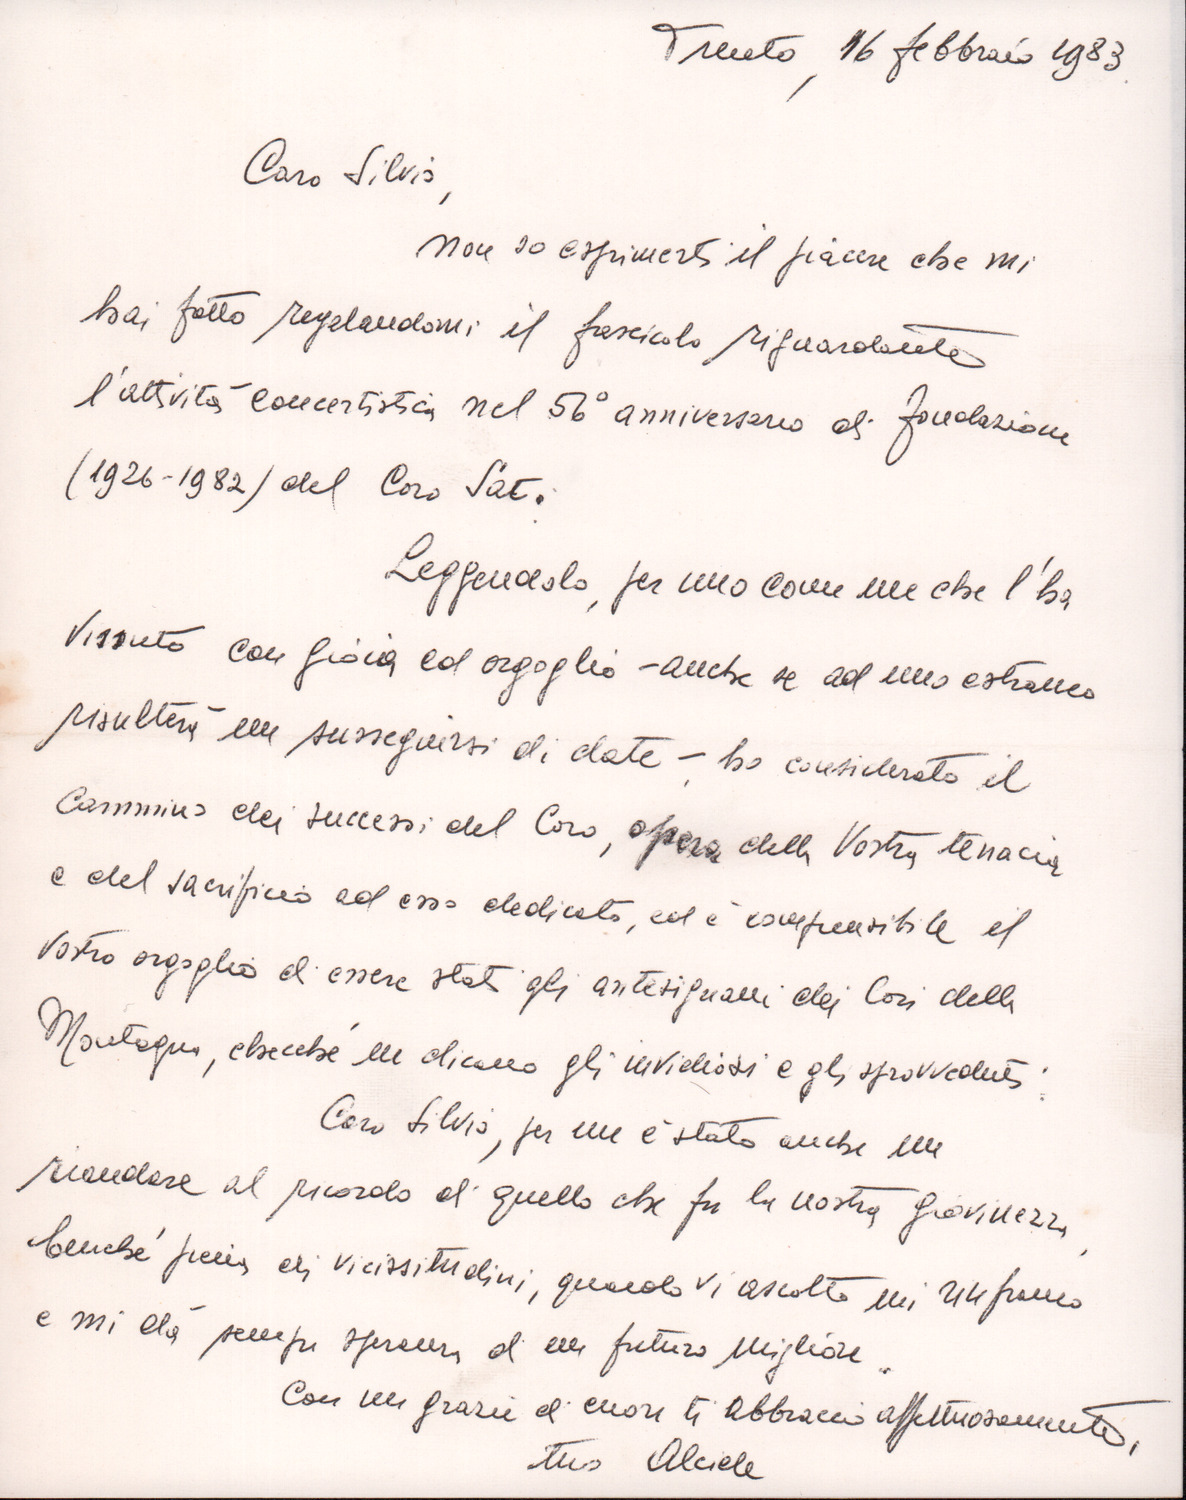 Trento, 16 febbraio 1983
Caro Silvio,
non so esprimerti il piacere che mi
hai fatto regalandomi il fascicolo riguardante
l'attività concertistica nel 56° anniversario di fondazione
(1926-1982) del Coro Sat.
Leggendolo, per uno come me che l'ha
vissuto con gioia ed orgoglio - anche se ad uno estraneo
risulterà un susseguirsi di date -, ho considerato il
cammino dei successi del Coro, opera della Vostra tenacia
e del sacrificio ad esso dedicato, ed è comprensibile il
Vostro orgoglio di essere stati gli antesignani dei Cori della
Montagna, checché ne dicano gli invidiosi e gli sprovveduti.
Caro Silvio, per me è stato anche un
riandare al ricordo di quello che fu la nostra giovinezza,
benché piena di vicissitudini, quando vi ascolto mi rinfranco
e mi dà sempre speranza di un futuro migliore.
Con un grazie di cuore ti abbraccio affettuosamente,
tuo Alcide